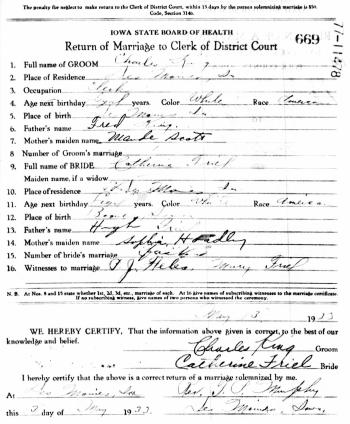 The penalty for neglect to make return to the Clerk of District Court, within 15 days by the person solemnizing marriage is $50.
Code, Section 3146.
IOWA STATE BOARD OF HEALTH
Return of Marriage to Clerk of District Court
669
1. Full name of GROOM Charles King
2. Place of Residence Des Moines, Ia
3. Occupation
4. Age next birthday years. Color White Race America
5. Place of birth Moines Ia
6. Father's name Fred King
7. Mother's maiden name Maude Scott
8. Number of Groom's marriage
9. Full name of BRIDE Catherine Friel
Maiden name, if a widow
10. Place of residence Des Moines, Ia
11. Age next birthday years. Color White Race America
12. Place of birth
13. Father's name Hugh Friel
14. Mother's maiden name Sophia
15. Number of bride's marriage
16. Witnesses to marriage Mary Friel
N. B. At Nos. 8 and 15 state whether 1st, 2d, 3d, etc., marriage of each. At 16 give names of subscribing witnesses to the marriage certificate.
If no subscribing witness, give names of two persons who witnessed the ceremony.
May 3 1933
WE HEREBY CERTIFY, That the information above given is correct, to the best of our
knowledge and belief.
Charles King Groom
Catherine Friel Bride
I hereby certify that the above is a correct return of a marriage solemnized by me.
At Des Moines, Iowa Rev. Murphy
this 3 day of May 1933. Des Moines, Iowa